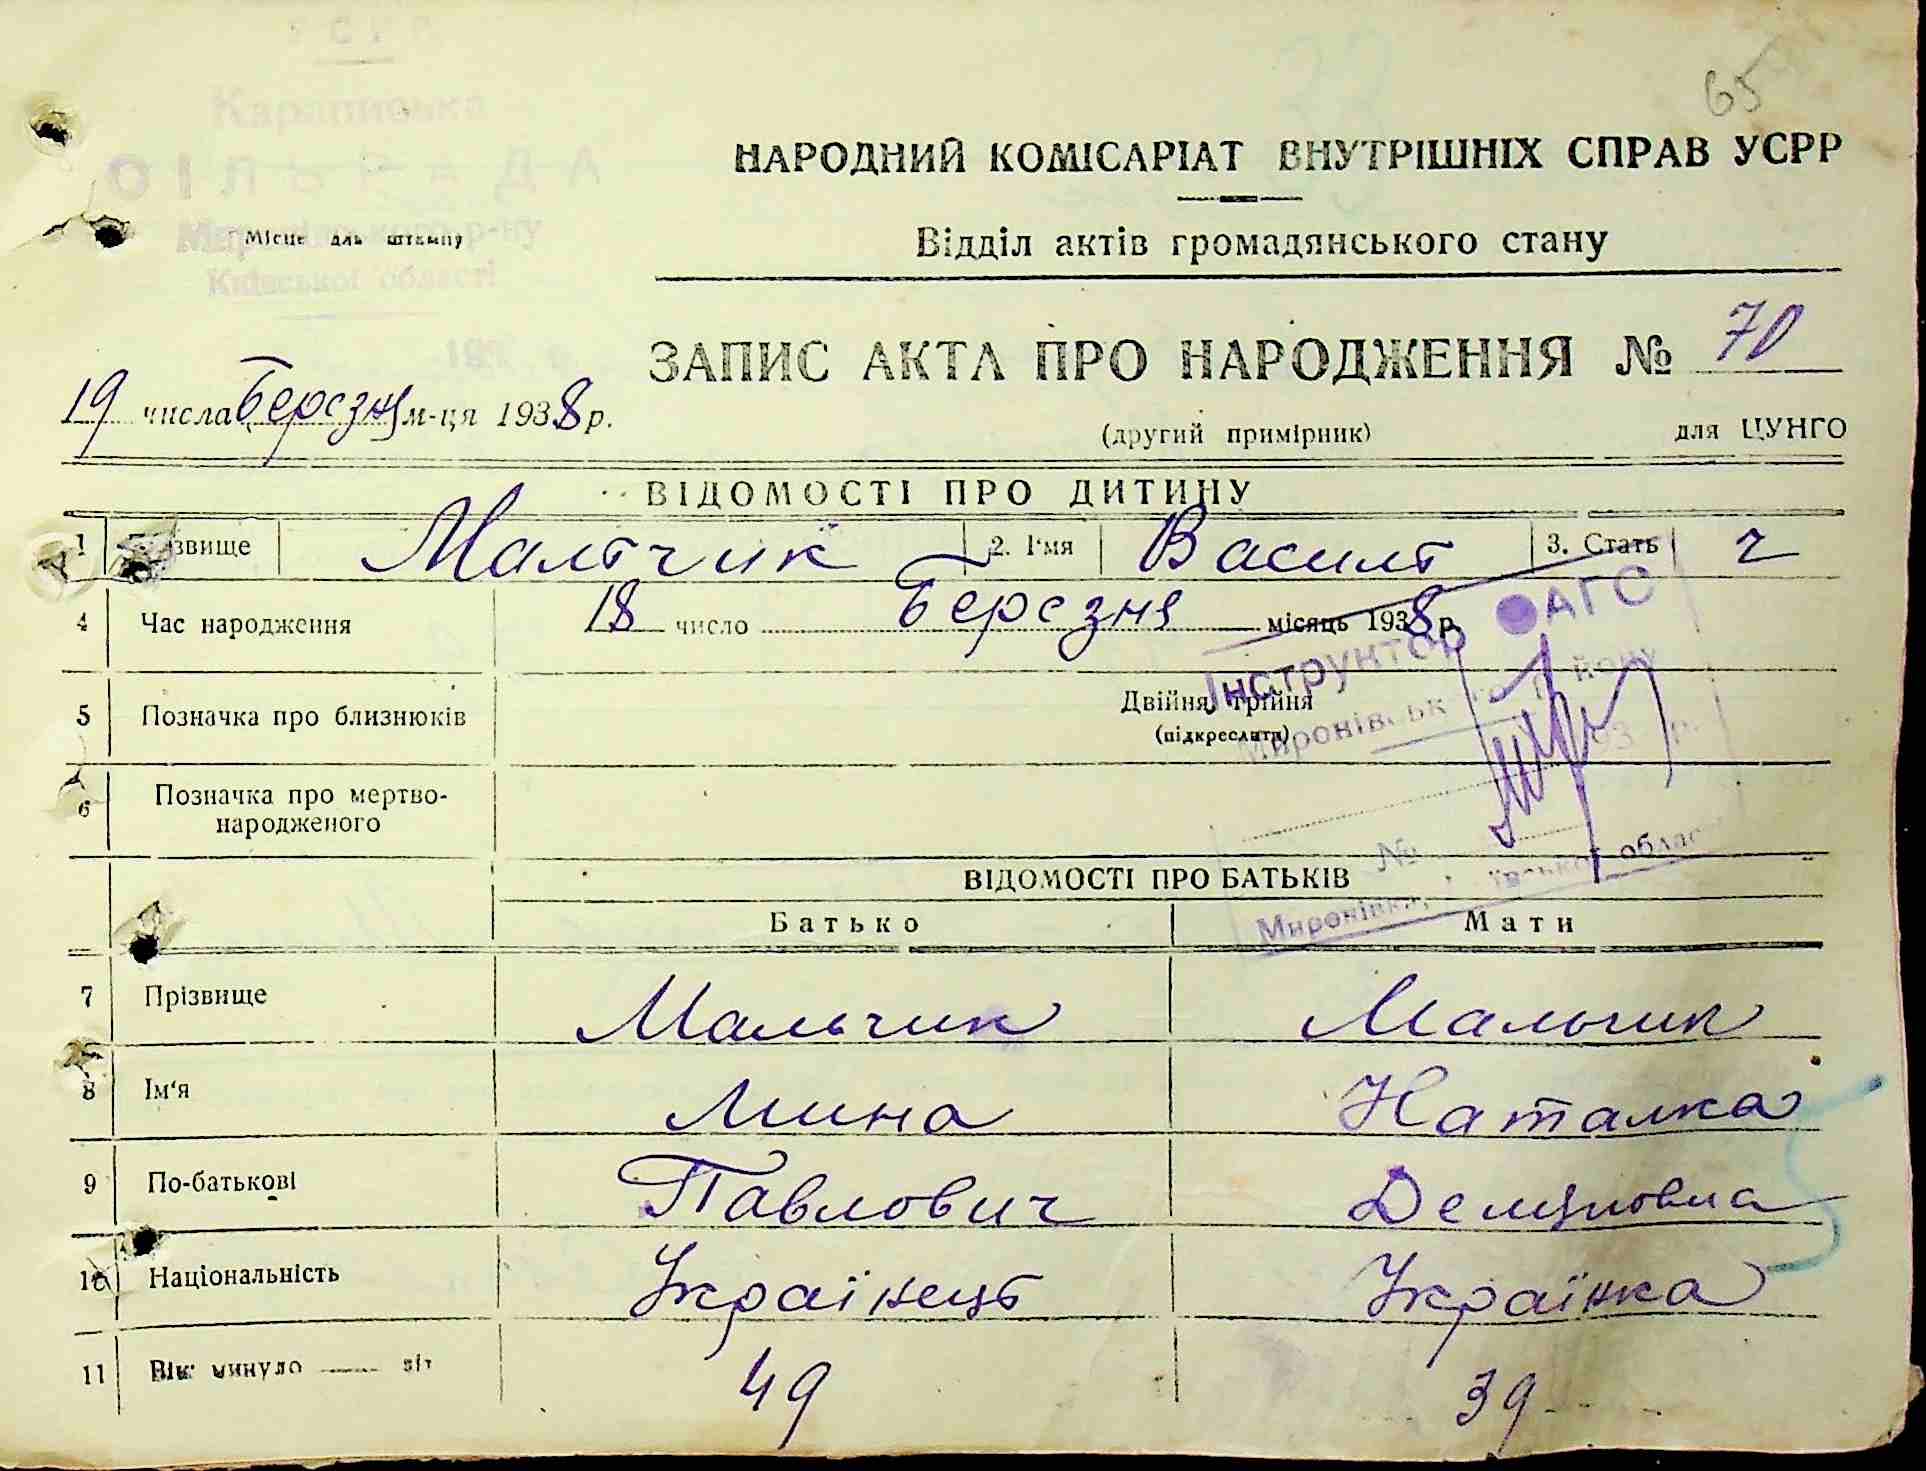 УСРР
Караписька
СІЛЬРАДА
Миронівського р-ну
Київської області
65
НАРОДНИЙ КОМІСАРІАТ ВНУТРІШНІХ СПРАВ УСРР
Місце для штампу
Відділ актів громадянського стану
ЗАПИС АКТА ПРО НАРОДЖЕННЯ № 70
19 числа Березня м-ця 1938 р.
(другий примірник) для ЦУНГО
ВІДОМОСТІ ПРО ДИТИНУ
1 Прізвище Мальчик 2. Ім'я Василь 3. Стать ч
4 Час народження 18 число Березня місяць 1938 р.
Інструктор ЗАГС
Миронівського району
193 р.
№
Миронівка, Київської област
5 Позначка про близнюків Двійня, трійня
(підкреслити)
6 Позначка про мертво-
народженого
ВІДОМОСТІ ПРО БАТЬКІВ
Батько Мати
7 Прізвище Мальчик Мальчик
8 Ім'я Мина Наталка
9 По-батькові Павлович Демʼяновна
10 Національність Українець Українка
11 Вік: минуло літ 49 39